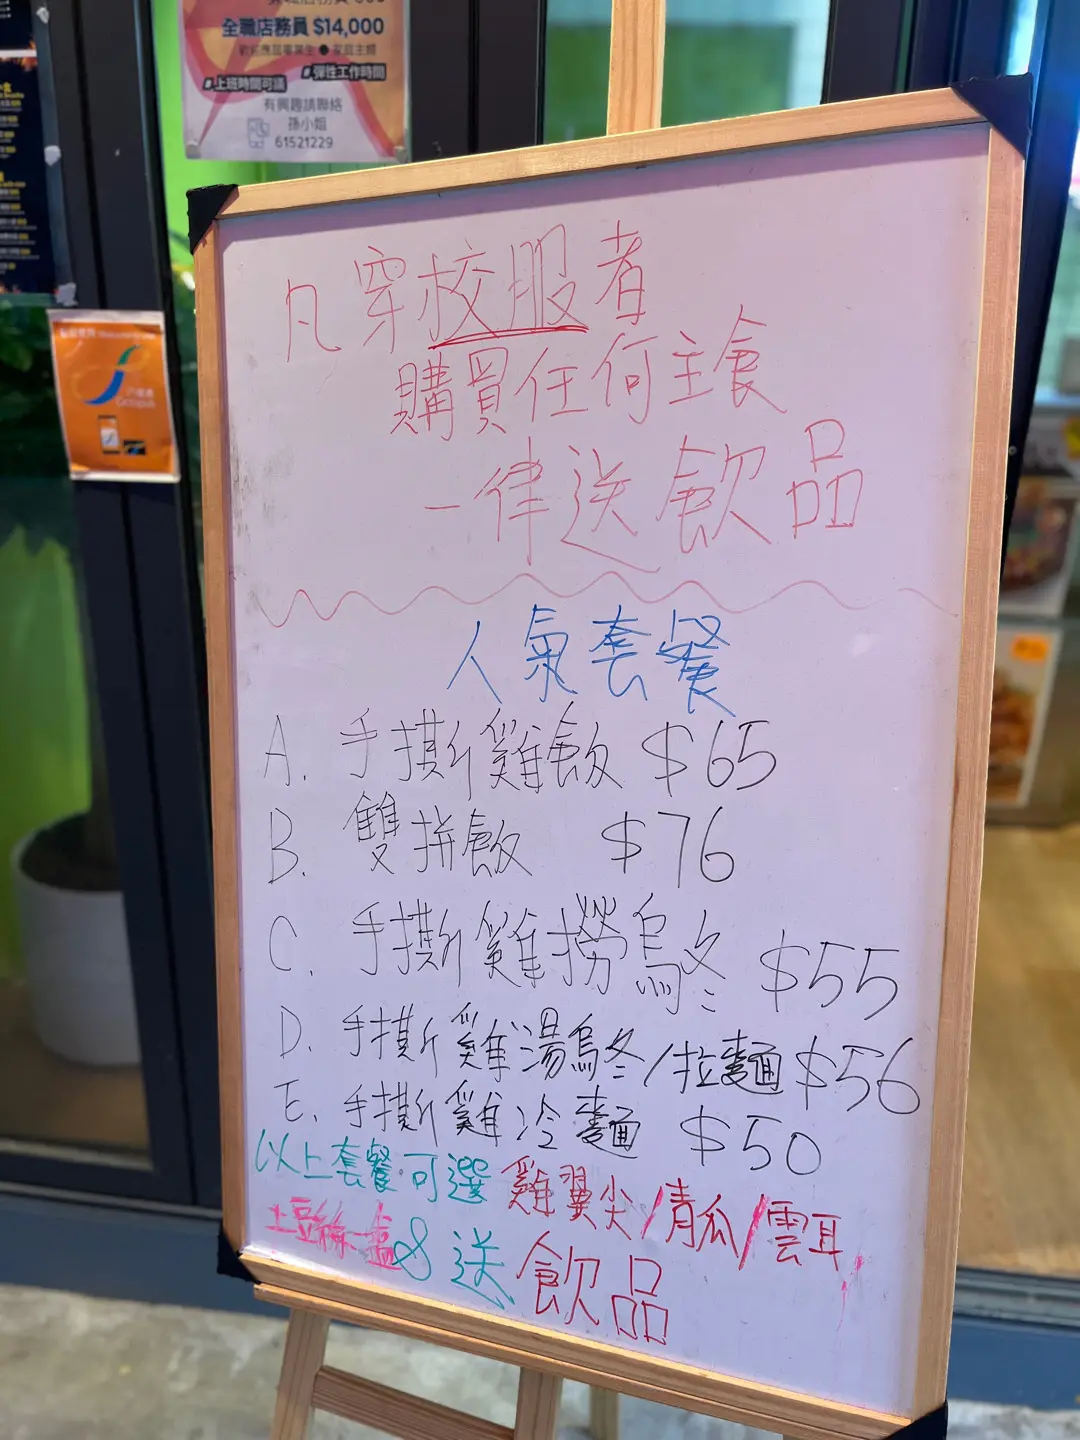 全職店務員 $14,000
歡迎應屆畢業生 ● 家庭主婦
#上班時間可議 #彈性工作時間
有興趣請聯絡
孫小姐
61521229
Octopus
凡穿校服者
購買任何主食
一律送飲品
人氣套餐
A. 手撕雞飯 $65
B. 雙拼飯 $76
C. 手撕雞撈烏冬 $55
D. 手撕雞湯烏冬/拉麵 $56
E. 手撕雞冷麵 $50
以上套餐可選 雞翼尖/青瓜/雲耳
土豆絲一盒 & 送飲品